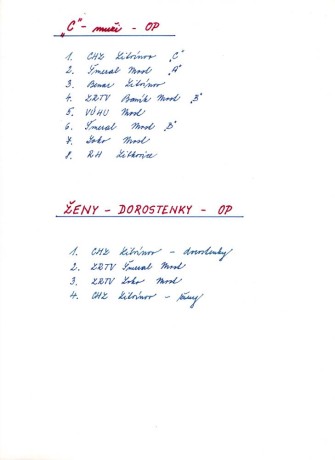 "C" - muži - OP
1. CHZ Litvínov "C"
2. Šmeral Most "A"
3. Benar Litvínov
4. ZRTV Baník Most "B"
5. VÚHU Most
6. Šmeral Most "B"
7. Loko Most
8. RH Litvínov
ŽENY - DOROSTENKY - OP
1. CHZ Litvínov - dorostenky
2. ZRTV Šmeral Most
3. ZRTV Loko Most
4. CHZ Litvínov - ženy